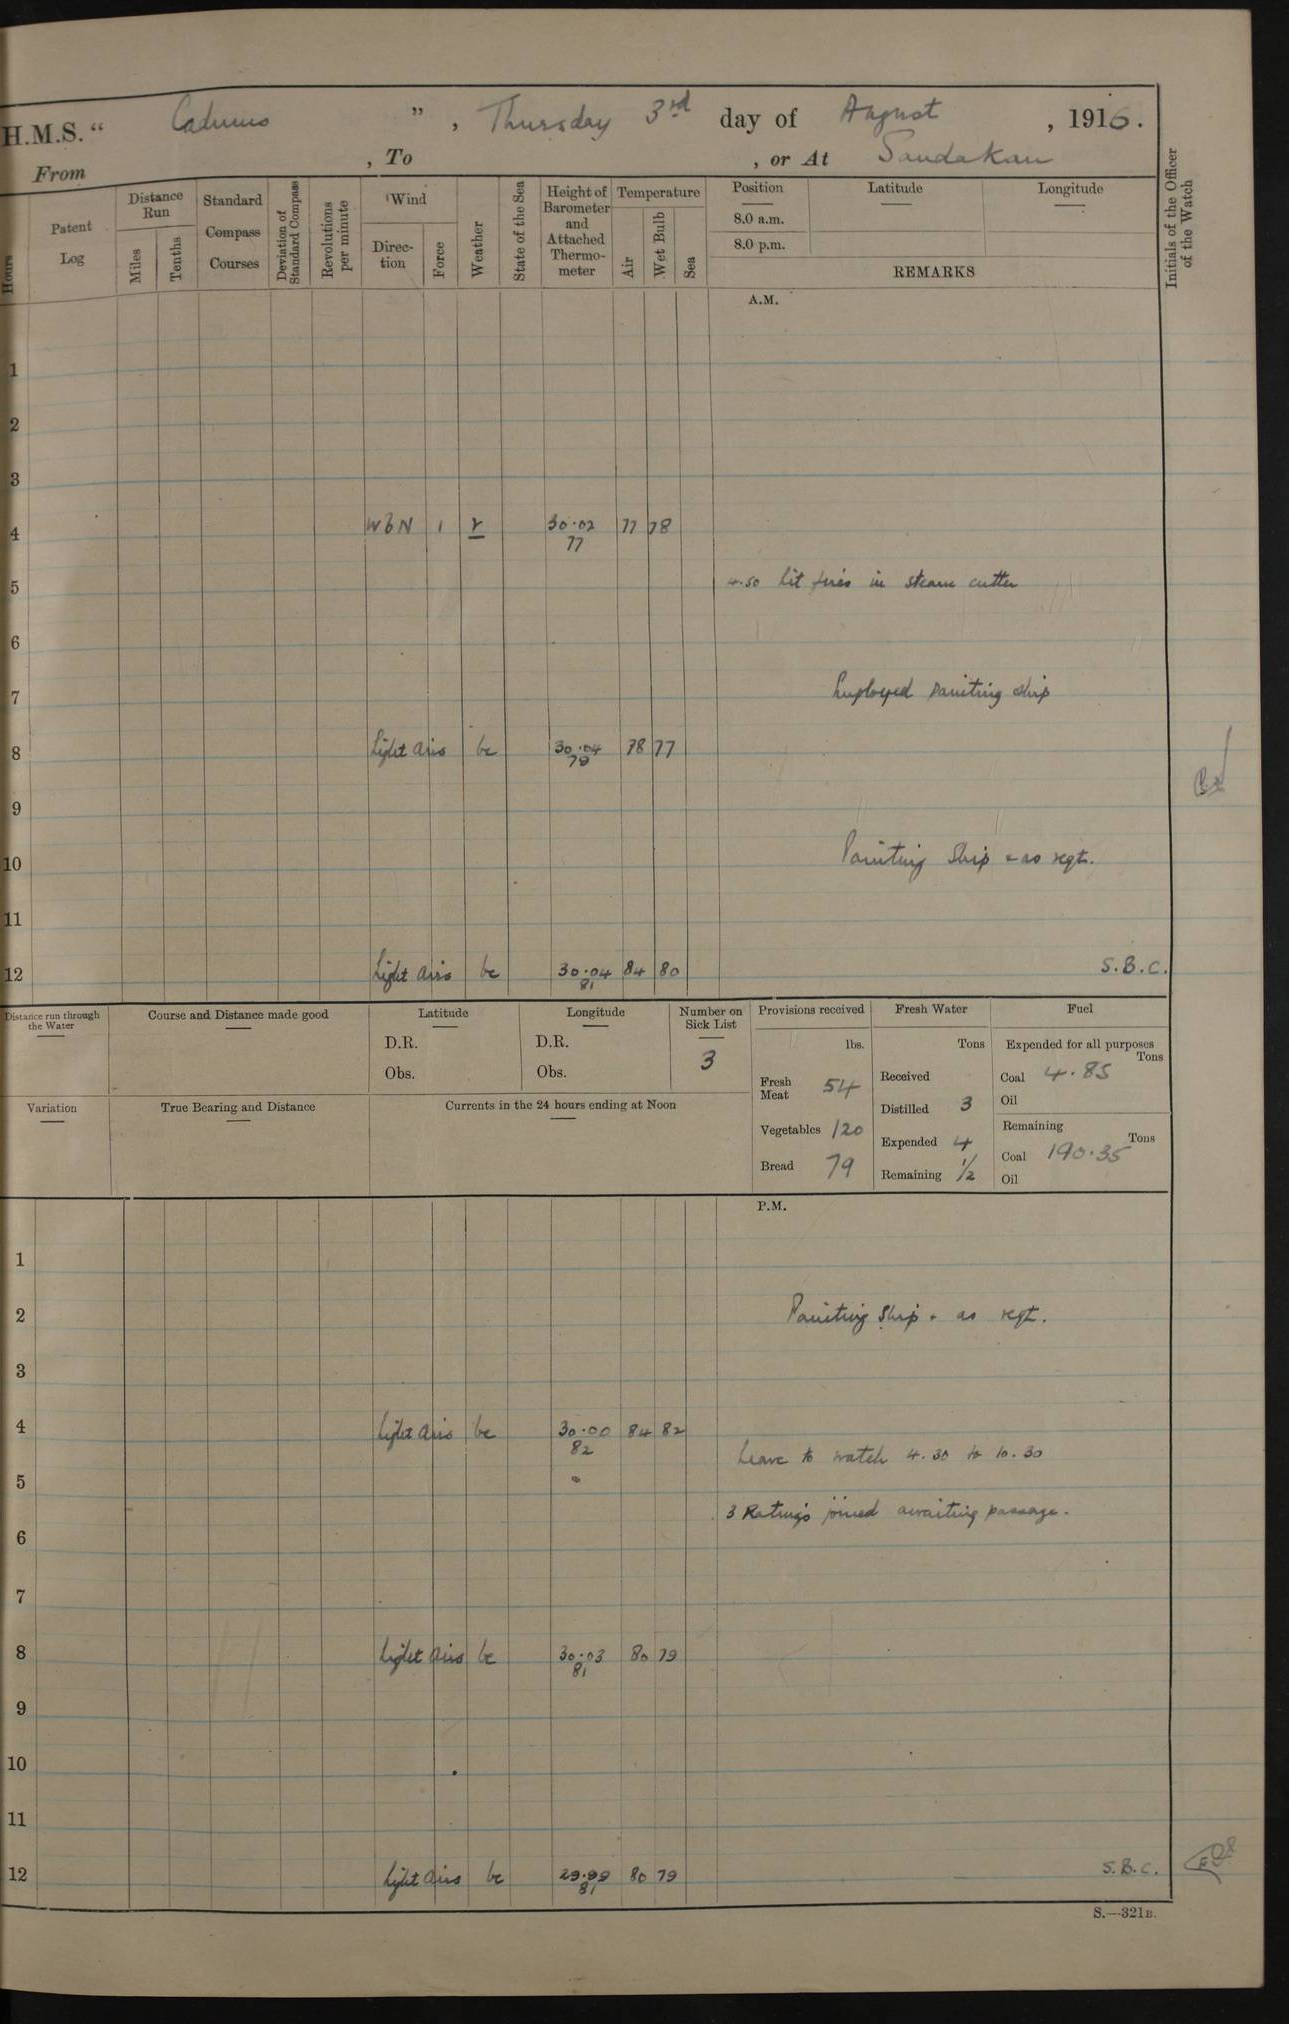 H.M.S. “ Cadmus ” , Thursday 3rd day of August , 1916.
From , To , or At Sandakan
Hours
Patent Log
Distance Run
Miles
Tenths
Standard Compass Courses
Deviation of Standard Compass
Revolutions per minute
Wind
Direc-tion
Force
Weather
State of the Sea
Height of Barometer and Attached Thermo-meter
Temperature
Air
Wet Bulb
Sea
Position Latitude Longitude
8.0 a.m.
8.0 p.m.
REMARKS
Initials of the Officer of the Watch
A.M.
1
2
3
4 WbN 1 r 30.02 77 78
77
4.50 Lit fires in steam cutter
5
6
7 Employed painting ship
8 Light airs bc 30.04 78 77
79
9
10 Painting Ship & as reqt.
11
12 Light airs bc 30.04 84 80 S.B.C.
81
Distance run through the Water
Course and Distance made good
Latitude
D.R.
Obs.
Longitude
D.R.
Obs.
Number on Sick List
3
Variation
True Bearing and Distance
Currents in the 24 hours ending at Noon
Provisions received
lbs.
Fresh Meat 54
Vegetables 120
Bread 79
Fresh Water
Tons
Received
Distilled 3
Expended 4
Remaining 1/2
Fuel
Expended for all purposes
Tons
Coal 4.85
Oil
Remaining
Tons
Coal 190.35
Oil
P.M.
1
2 Painting Ship & as reqt.
3
4 Light airs bc 30.00 84 82
82
Leave to watch 4.30 to 10.30
5
3 Ratings joined awaiting passage.
6
7
8 Light airs bc 30.03 80 79
81
9
10
11
12 Light airs bc 29.99 80 79 S.B.C.
81
S.—321B.